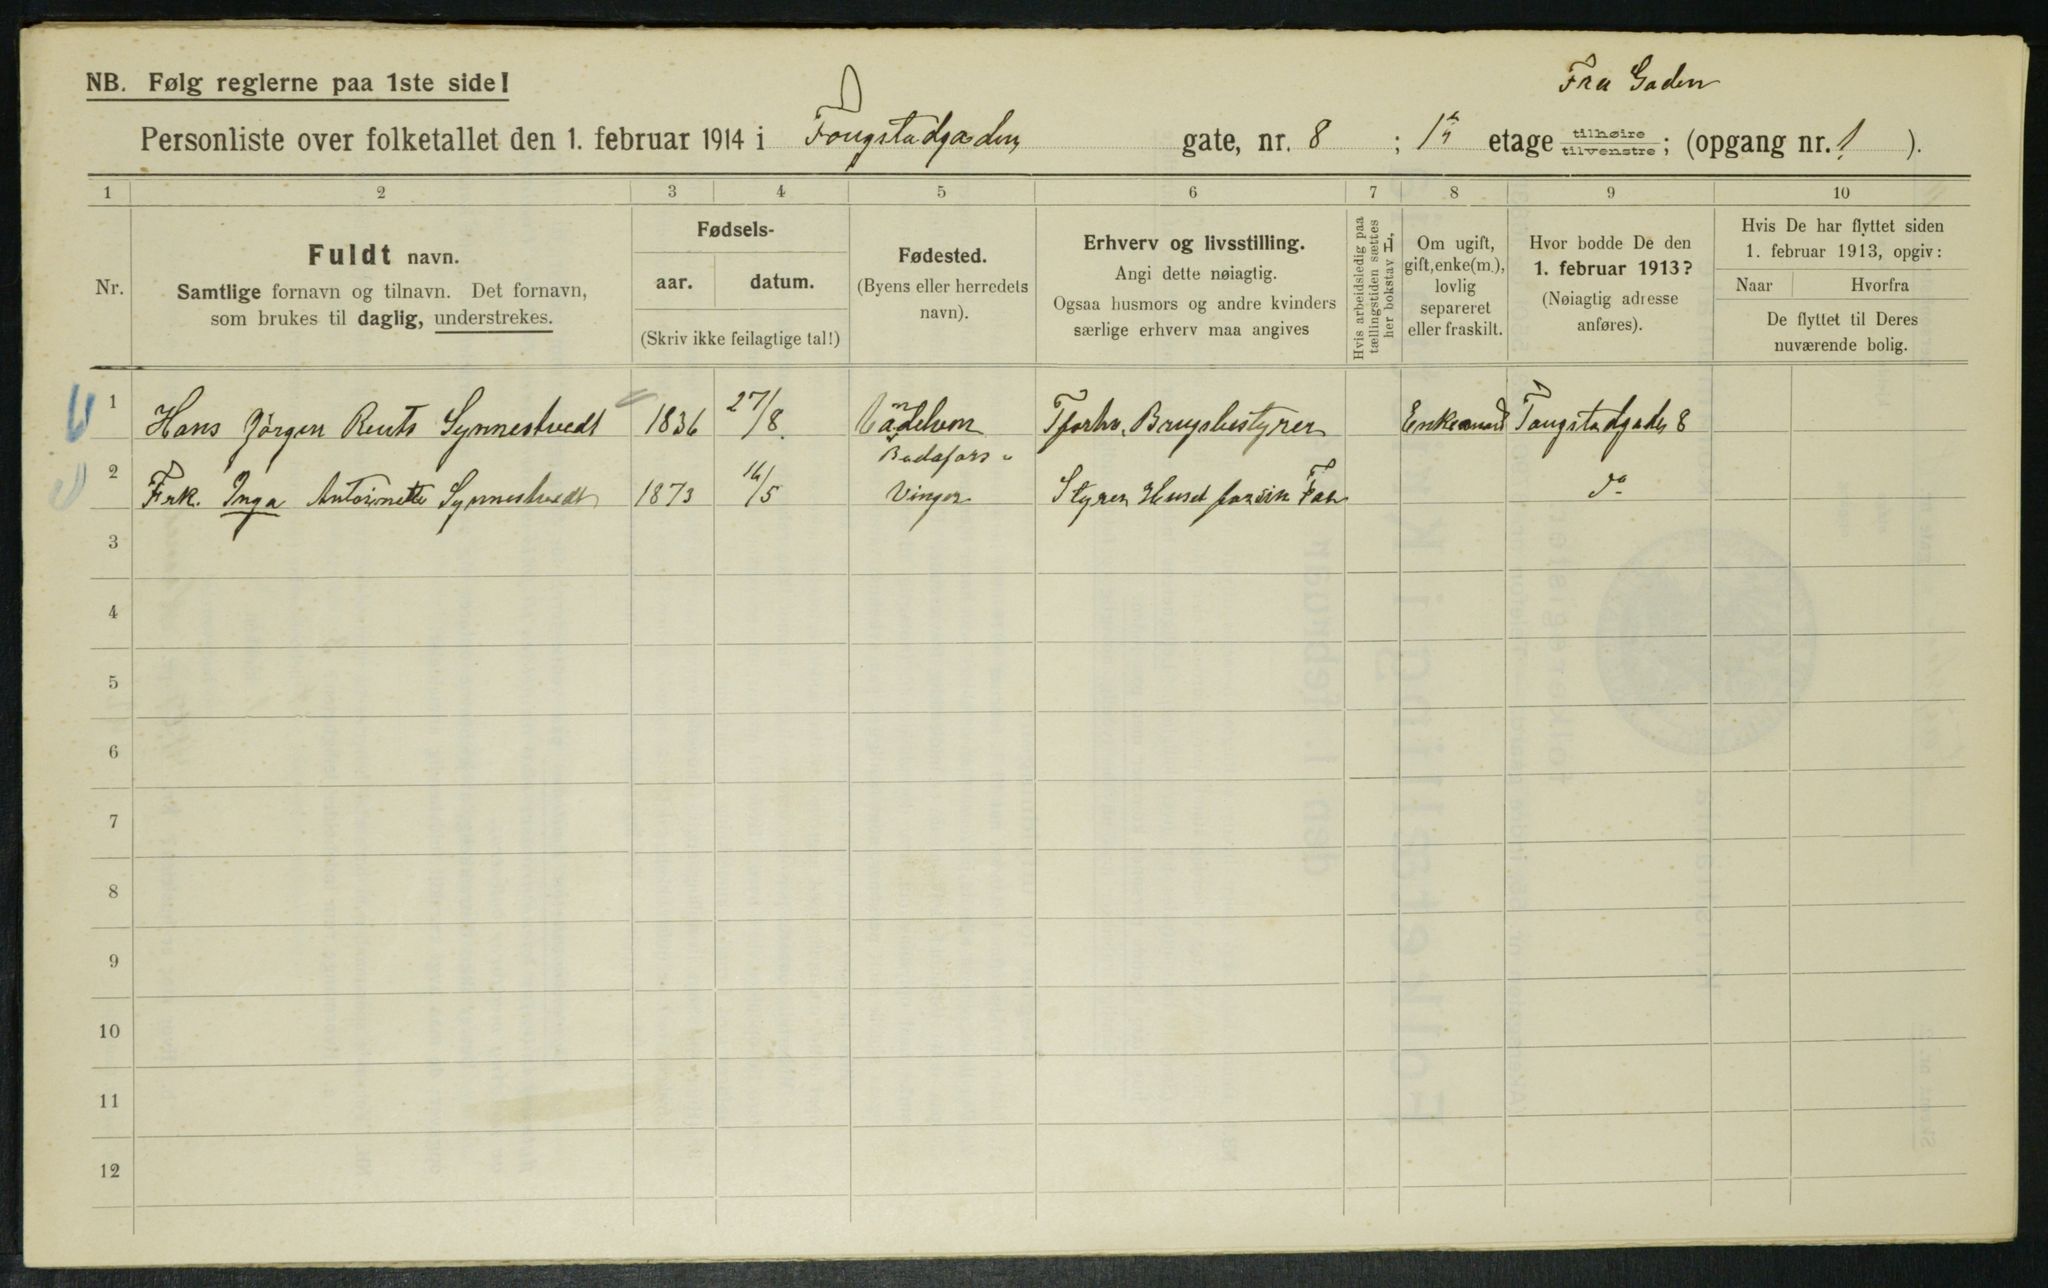 NB. Følg reglerne paa 1ste side!
Fra Gaden
Personliste over folketallet den 1. februar 1914 i Fougstadgaden gate, nr. 8; 1ste etage tilhøire tilvenstre; (opgang nr. 1).
1 2 3 4 5 6 7 8 9 10
Nr.
Fuldt navn.
Samtlige fornavn og tilnavn. Det fornavn,
som brukes til daglig, understrekes.
Fødsels-
aar. datum.
(Skriv ikke feilagtige tal!)
Fødested.
(Byens eller herredets
navn).
Erhverv og livsstilling.
Angi dette nøiagtig.
Ogsaa husmors og andre kvinders
særlige erhverv maa angives
Hvis arbeidsledig paa
tællingstiden sættes
her bokstav L,
Om ugift,
gift, enke(m.),
lovlig
separeret
eller fraskilt.
Hvor bodde De den
1. februar 1913?
(Nøiagtig adresse
anføres).
Hvis De har flyttet siden
1. februar 1913, opgiv:
Naar Hvorfra
De flyttet til Deres
nuværende bolig.
1 Hans Jørgen Rents Synnestvedt 1836 27/8 Brugsbestyrer Enkemand Fougstadgaden 8
2 Frk. Inga Antoinette Synnestvedt 1873 16/5 Vinger Styrer Huset for sin Far do
3
4
5
6
7
8
9
10
11
12